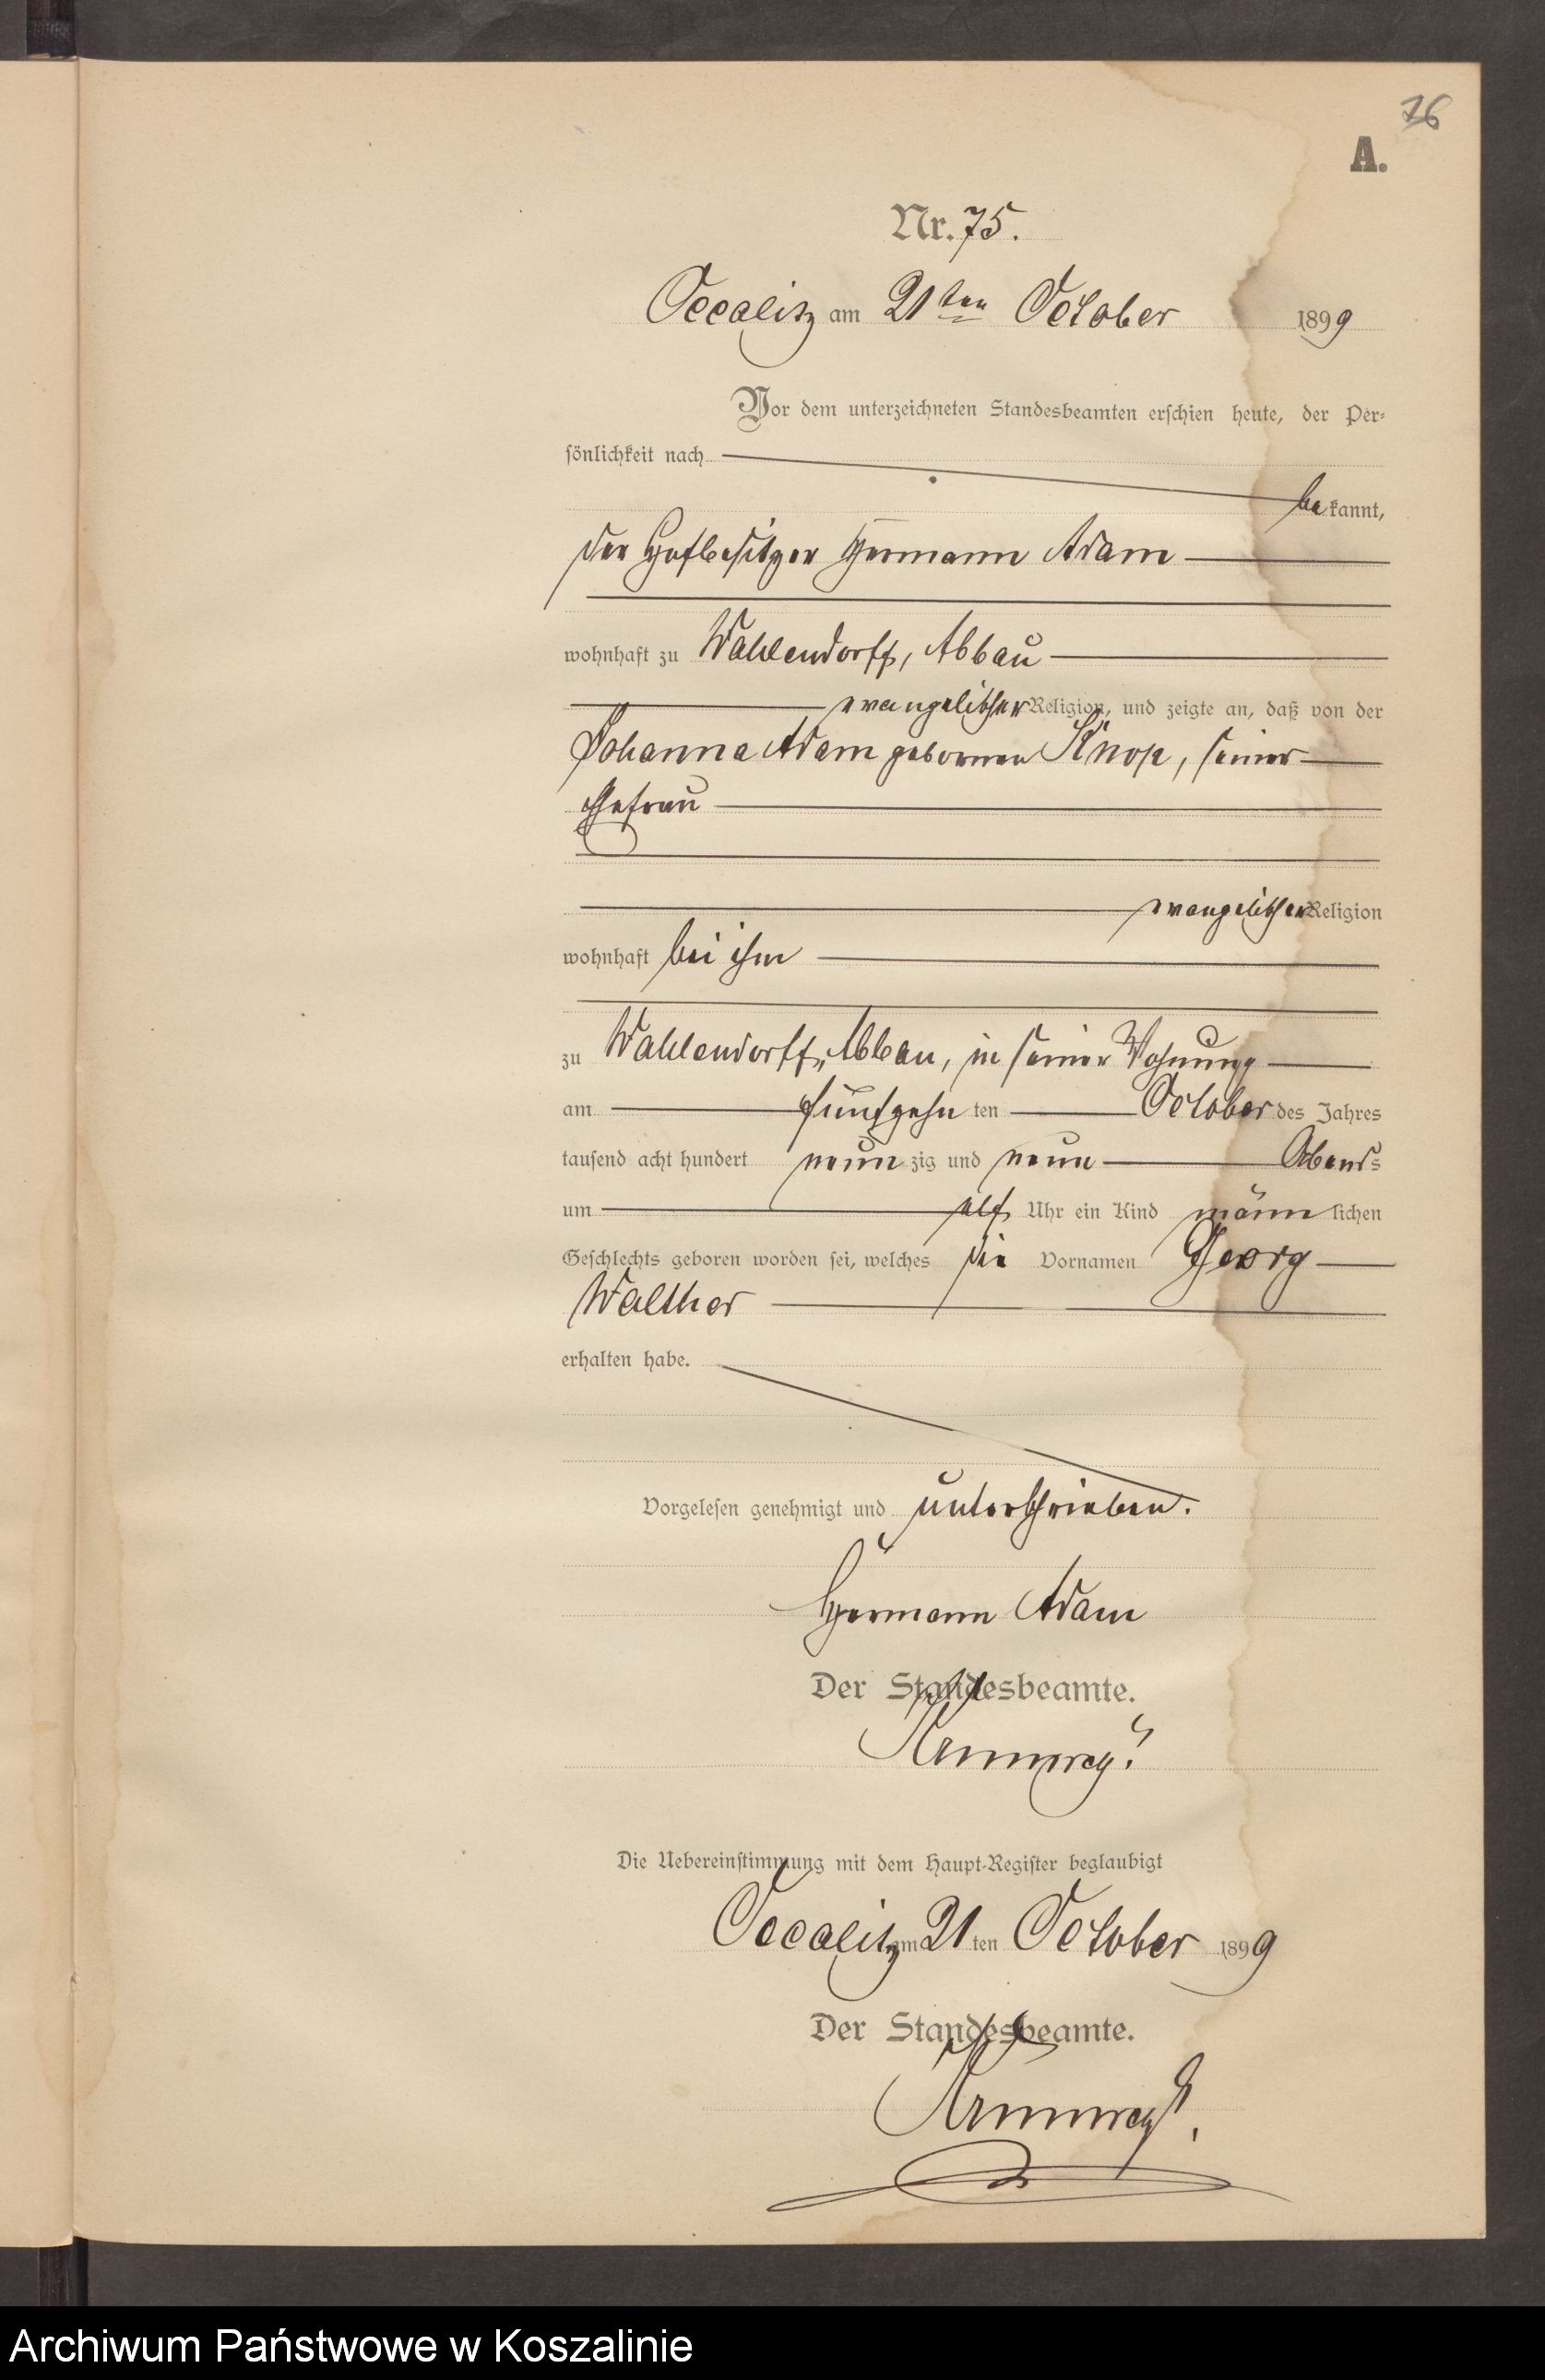 76
A.
Nr. 75.
Occalitz am 21ten October 1899
Vor dem unterzeichneten Standesbeamten erschien heute, der Per-
sönlichkeit nach
bekannt,
der Hofbesitzer Hermann Adam
wohnhaft zu Wahlendorff, Abbau
evangelischer Religion, und zeigte an, daß von der
Johanna Adam geborenen Knop, seiner
Ehefrau
evangelischer Religion
wohnhaft bei ihm
zu Wahlendorff, Abbau, in seiner Wohnung
am fünfzehnten October des Jahres
tausend acht hundert neunzig und neun Abends
um elf Uhr ein Kind männlichen
Geschlechts geboren worden sei, welches die Vornamen Georg
Walther
erhalten habe.
Vorgelesen genehmigt und unterschrieben.
Hermann Adam
Der Standesbeamte.
Die Uebereinstimmung mit dem Haupt-Register beglaubigt
Occalitz am 21ten October 1899
Der Standesbeamte.
Archiwum Państwowe w Koszalinie